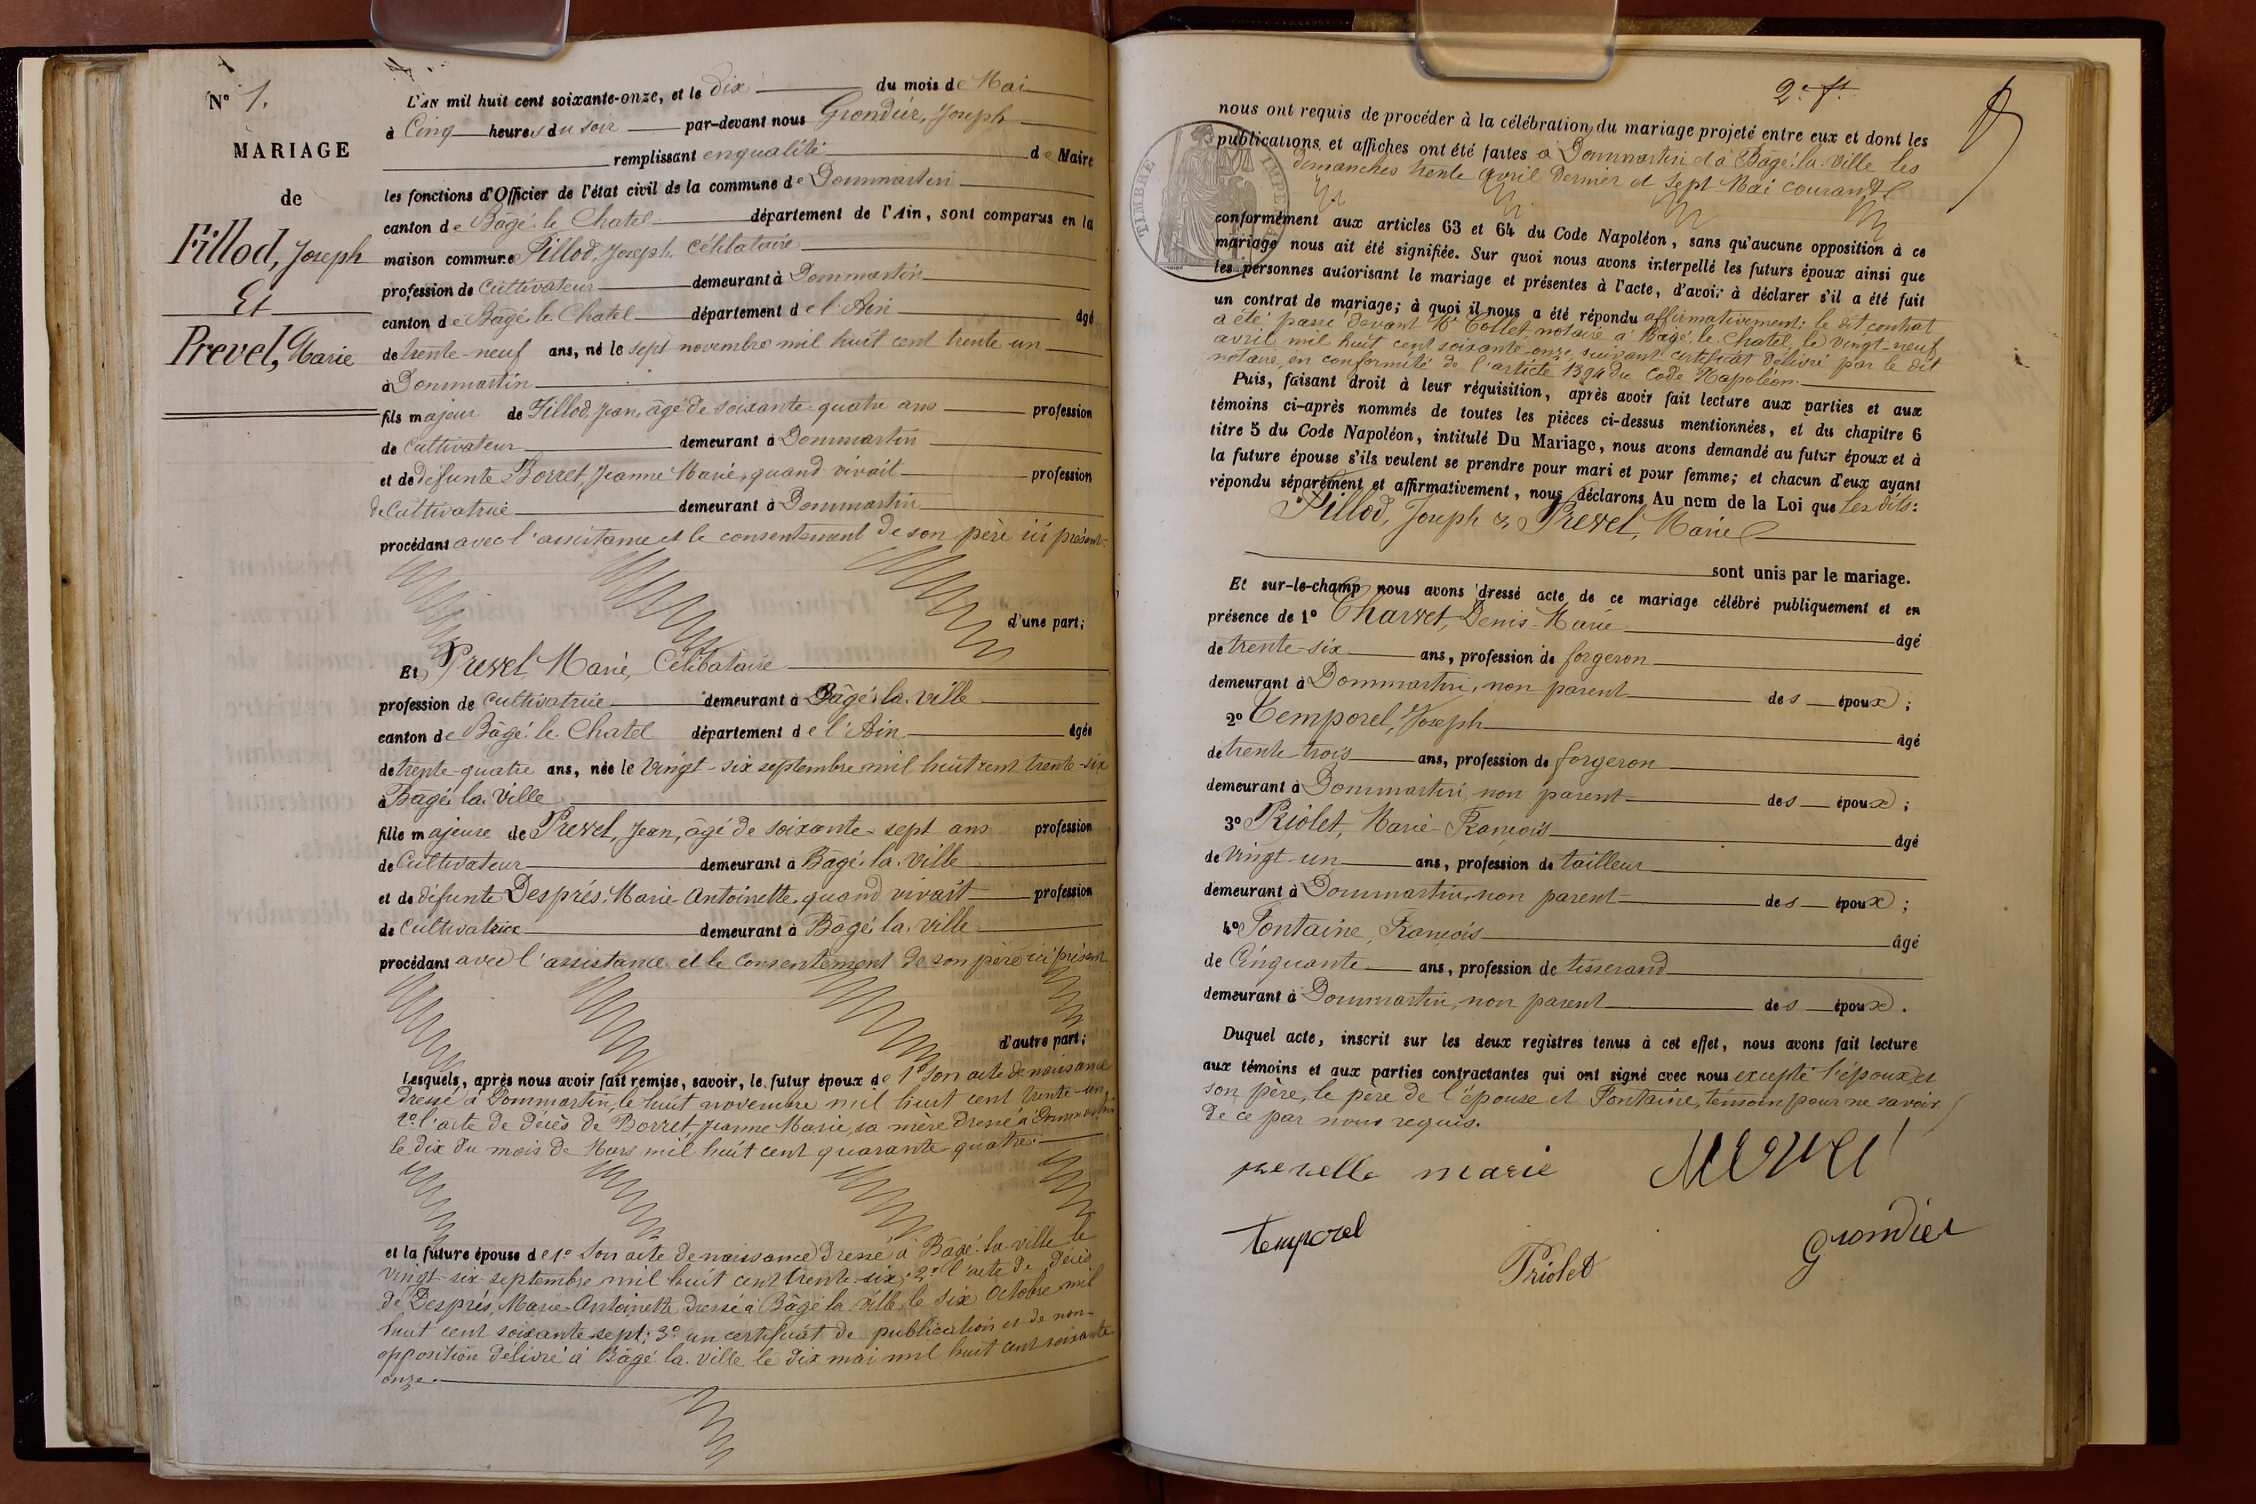 N° 1.
MARIAGE
de
Fillod, Joseph
Et
Prevel, Marie
L'AN mil huit cent soixante-onze, et le dix du mois de Mai
à Cinq heures du soir par-devant nous Grondier, Joseph
remplissant en qualité de Maire
les fonctions d'Officier de l'état civil de la commune de Dommartin
canton de Bâgé-le-Chatel département de l'Ain, sont comparus en la
maison commune Fillod, Joseph, Célibataire
profession de Cultivateur demeurant à Dommartin
canton de Bâgé-le-Chatel département de l'Ain âgé
de trente-neuf ans, né le sept novembre mil huit cent trente-un
à Dommartin
fils majeur de Fillod, Jean, âgé de soixante-quatre ans profession
de Cultivateur demeurant à Dommartin
et de défunte Borret, Jeanne Marie, quand vivait profession
de Cultivatrice demeurant à Dommartin
procédant avec l'assistance et le consentement de son père ici présent
d'une part;
Et, Prevel Marie, Célibataire
profession de cultivatrice demeurant à Bâgé-la-ville
canton de Bâgé-le-Chatel département de l'Ain âgée
de trente-quatre ans, née le vingt-six septembre mil huit cent trente-six
à Bâgé-la-Ville
fille majeure de Prevel, Jean, âgé de soixante-sept ans profession
de Cultivateur demeurant à Bâgé-la-ville
et de défunte Després, Marie-Antoinette, quand vivait profession
de Cultivatrice demeurant à Bâgé-la-ville
procédant avec l'assistance et le consentement de son père ici présent
d'autre part;
Lesquels, après nous avoir fait remise, savoir, le futur époux de 1° Son acte de naissance
dressé à Dommartin, le huit novembre mil huit cent trente-un,
2° l'acte de décès de Borret, Jeanne Marie, sa mère dressé à Dommartin
le dix du mois de Mars mil huit cent quarante-quatre.
et la future épouse de 1° Son acte de naissance dressé à Bâgé-la-ville le
vingt-six septembre mil huit cent trente-six; 2° l'acte de décès
de Després, Marie-Antoinette dressé à Bâgé la Ville, le six Octobre mil
huit cent soixante-sept; 3° un certificat de publication et de non-
opposition délivré à Bâgé-la-ville le dix mai mil huit cent soixante
onze.
2e ft
nous ont requis de procéder à la célébration du mariage projeté entre eux et dont les
publications et affiches ont été faites à Dommartin et à Bâgé-la-Ville les
dimanches trente avril dernier et sept Mai courant
TIMBRE IMPE
conformément aux articles 63 et 64 du Code Napoléon, sans qu'aucune opposition à ce
mariage nous ait été signifiée. Sur quoi nous avons interpellé les futurs époux ainsi que
les personnes autorisant le mariage et présentes à l'acte, d'avoir à déclarer s'il a été fait
un contrat de mariage; à quoi il nous a été répondu affirmativement: le dit contrat
a été passé devant Me Collet notaire à Bâgé-le-Chatel, le vingt-neuf
avril mil huit cent soixante-onze, suivant certificat délivré par le dit
notaire, en conformité de l'article 1394 du Code Napoléon.
Puis, faisant droit à leur réquisition, après avoir fait lecture aux parties et aux
témoins ci-après nommés de toutes les pièces ci-dessus mentionnées, et du chapitre 6
titre 5 du Code Napoléon, intitulé Du Mariage, nous avons demandé au futur époux et à
la future épouse s'ils veulent se prendre pour mari et pour femme; et chacun d'eux ayant
répondu séparément et affirmativement, nous déclarons Au nom de la Loi que Les dits:
Fillod, Joseph & Prevel, Marie
sont unis par le mariage.
Et sur-le-champ nous avons dressé acte de ce mariage célébré publiquement et en
présence de 1° Charvet, Denis-Marie âgé
de trente-six ans, profession de forgeron
demeurant à Dommartin, non parent des époux;
2° Temporel, Joseph âgé
de trente-trois ans, profession de forgeron
demeurant à Dommartin, non parent des époux;
3° Priolet, Marie-François âgé
de vingt-un ans, profession de tailleur
demeurant à Dommartin, non parent des époux;
4° Fontaine, François âgé
de Cinquante ans, profession de tisserand
demeurant à Dommartin, non parent des époux.
Duquel acte, inscrit sur les deux registres tenus à cet effet, nous avons fait lecture
aux témoins et aux parties contractantes qui ont signé avec nous excepté l'époux et
son père, le père de l'épouse et Fontaine, témoin pour ne savoir
de ce par nous requis.
prevelle marie
temporel
Priolet
Grondier